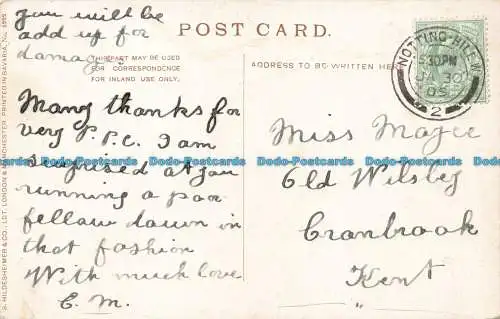 you will be
add up for
damag
POST CARD.
THIS PART MAY BE USED
FOR CORRESPONDENCE
FOR INLAND USE ONLY.
ADDRESS TO BE WRITTEN HERE
Many thanks for
very P.P.C. I am
surprised at you
running a poor
fellow down in
that fashion
With much love
C. M.
NOTTING-HILL.W
5.30PM
JA 30
05
2
Miss Magee
Old Wilsley
Cranbrook
Kent
S. HILDESHEIMER & CO., LDT. LONDON & MANCHESTER. PRINTED IN BAVARIA, No.
Dodo-Postcards
Dodo-Postcards
Dodo-Postcards
Dodo-Postcards
Dodo-Postcards